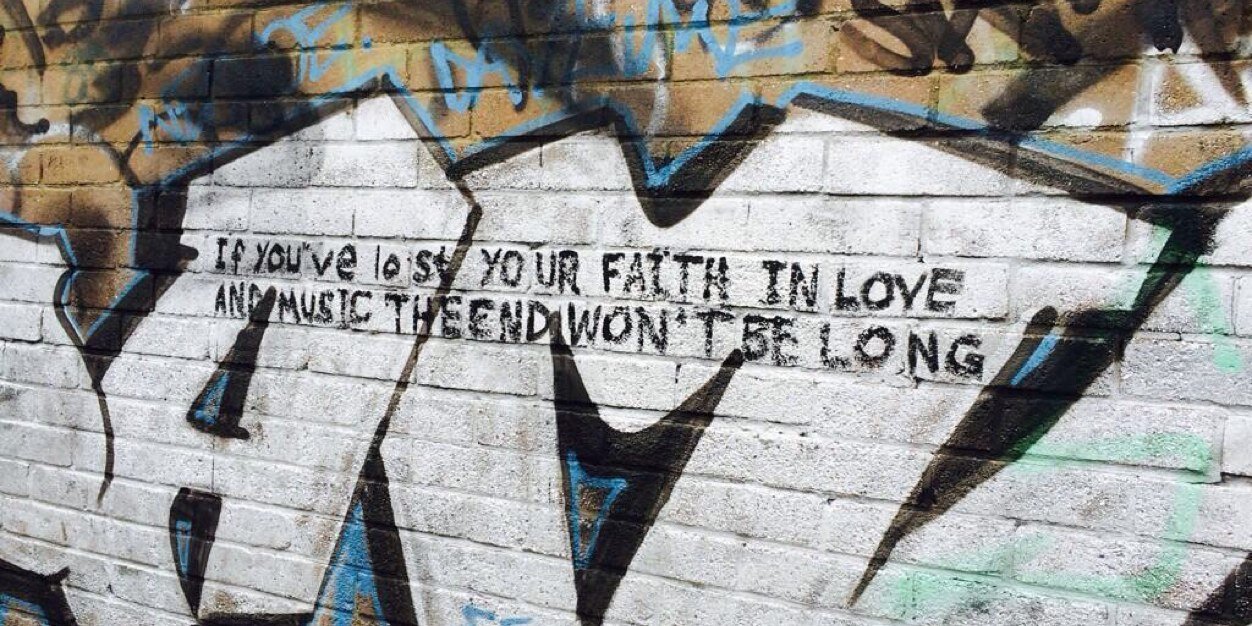 If YOU've lost YOUR FAITH IN LOVE
AND MUSIC THE END WON'T BE LONG